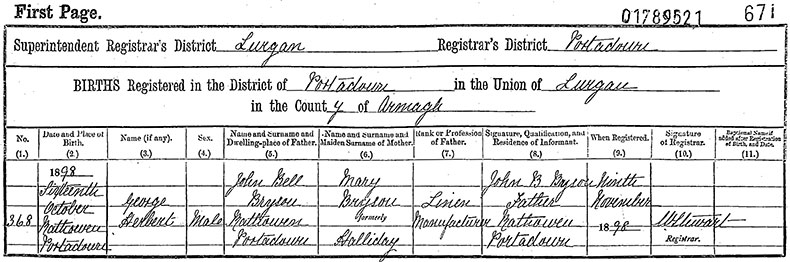 First Page.
01789521 671
Superintendent Registrar's District Lurgan Registrar's District Portadown
BIRTHS Registered in the District of Portadown in the Union of Lurgan
in the County of Armagh
No. Date and Place of Birth. Name (if any). Sex. Name and Surname and Dwelling-place of Father. Name and Surname and Maiden Surname of Mother. Rank or Profession of Father. Signature, Qualification, and Residence of Informant. When Registered. Signature of Registrar. Baptismal Name if added after Registration of Birth, and Date.
(1.) (2.) (3.) (4.) (5.) (6.) (7.) (8.) (9.) (10.) (11.)
1898
Sixteenth John Bell Mary John B Bryson Ninth
October George Bryson Bryson Linen Father November
368 Nathowen Herbert Male Nathowen formerly Manufacturer Nathowen 1898 Stewart
Portadown Portadown Halliday Portadown Registrar.